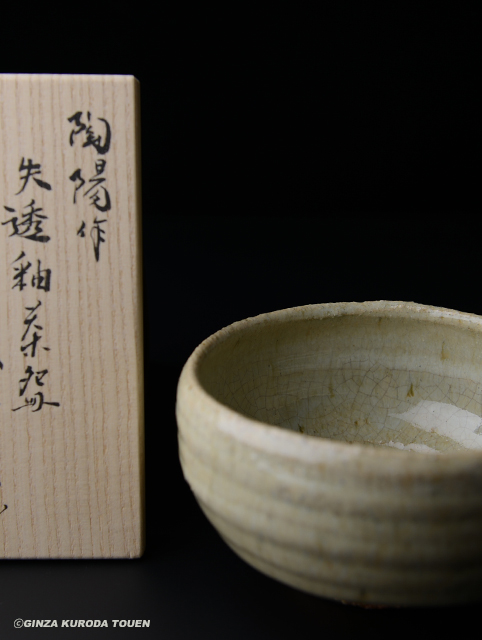 陶陽作
失透釉茶盌
©GINZA KURODA TOUEN